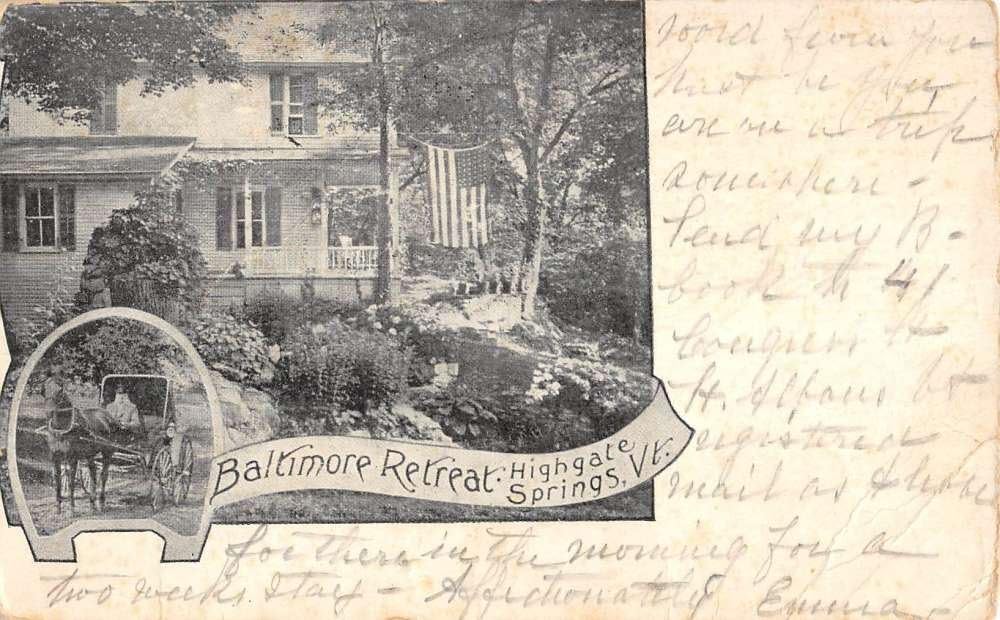 word from you
must be you
are on a trip
somewhere -
Send my B-
book to 41
Congress St
St. Albans Vt
registered
mail as I leave
for there in the morning for a
two weeks stay - Affectionately Emma -
Baltimore Retreat. Highgate
Springs, Vt.